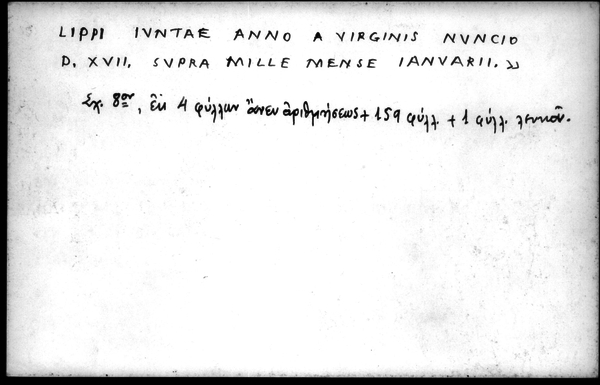 LIPPI IVNTAE ANNO A VIRGINIS NVNCIO
D. XVII. SVPRA MILLE MENSE IANVARII. »
Σχ. 8ον, ἐκ 4 φύλλων ἄνευ ἀριθμήσεως + 159 φύλλ. + 1 φύλλ. λευκοῦ.